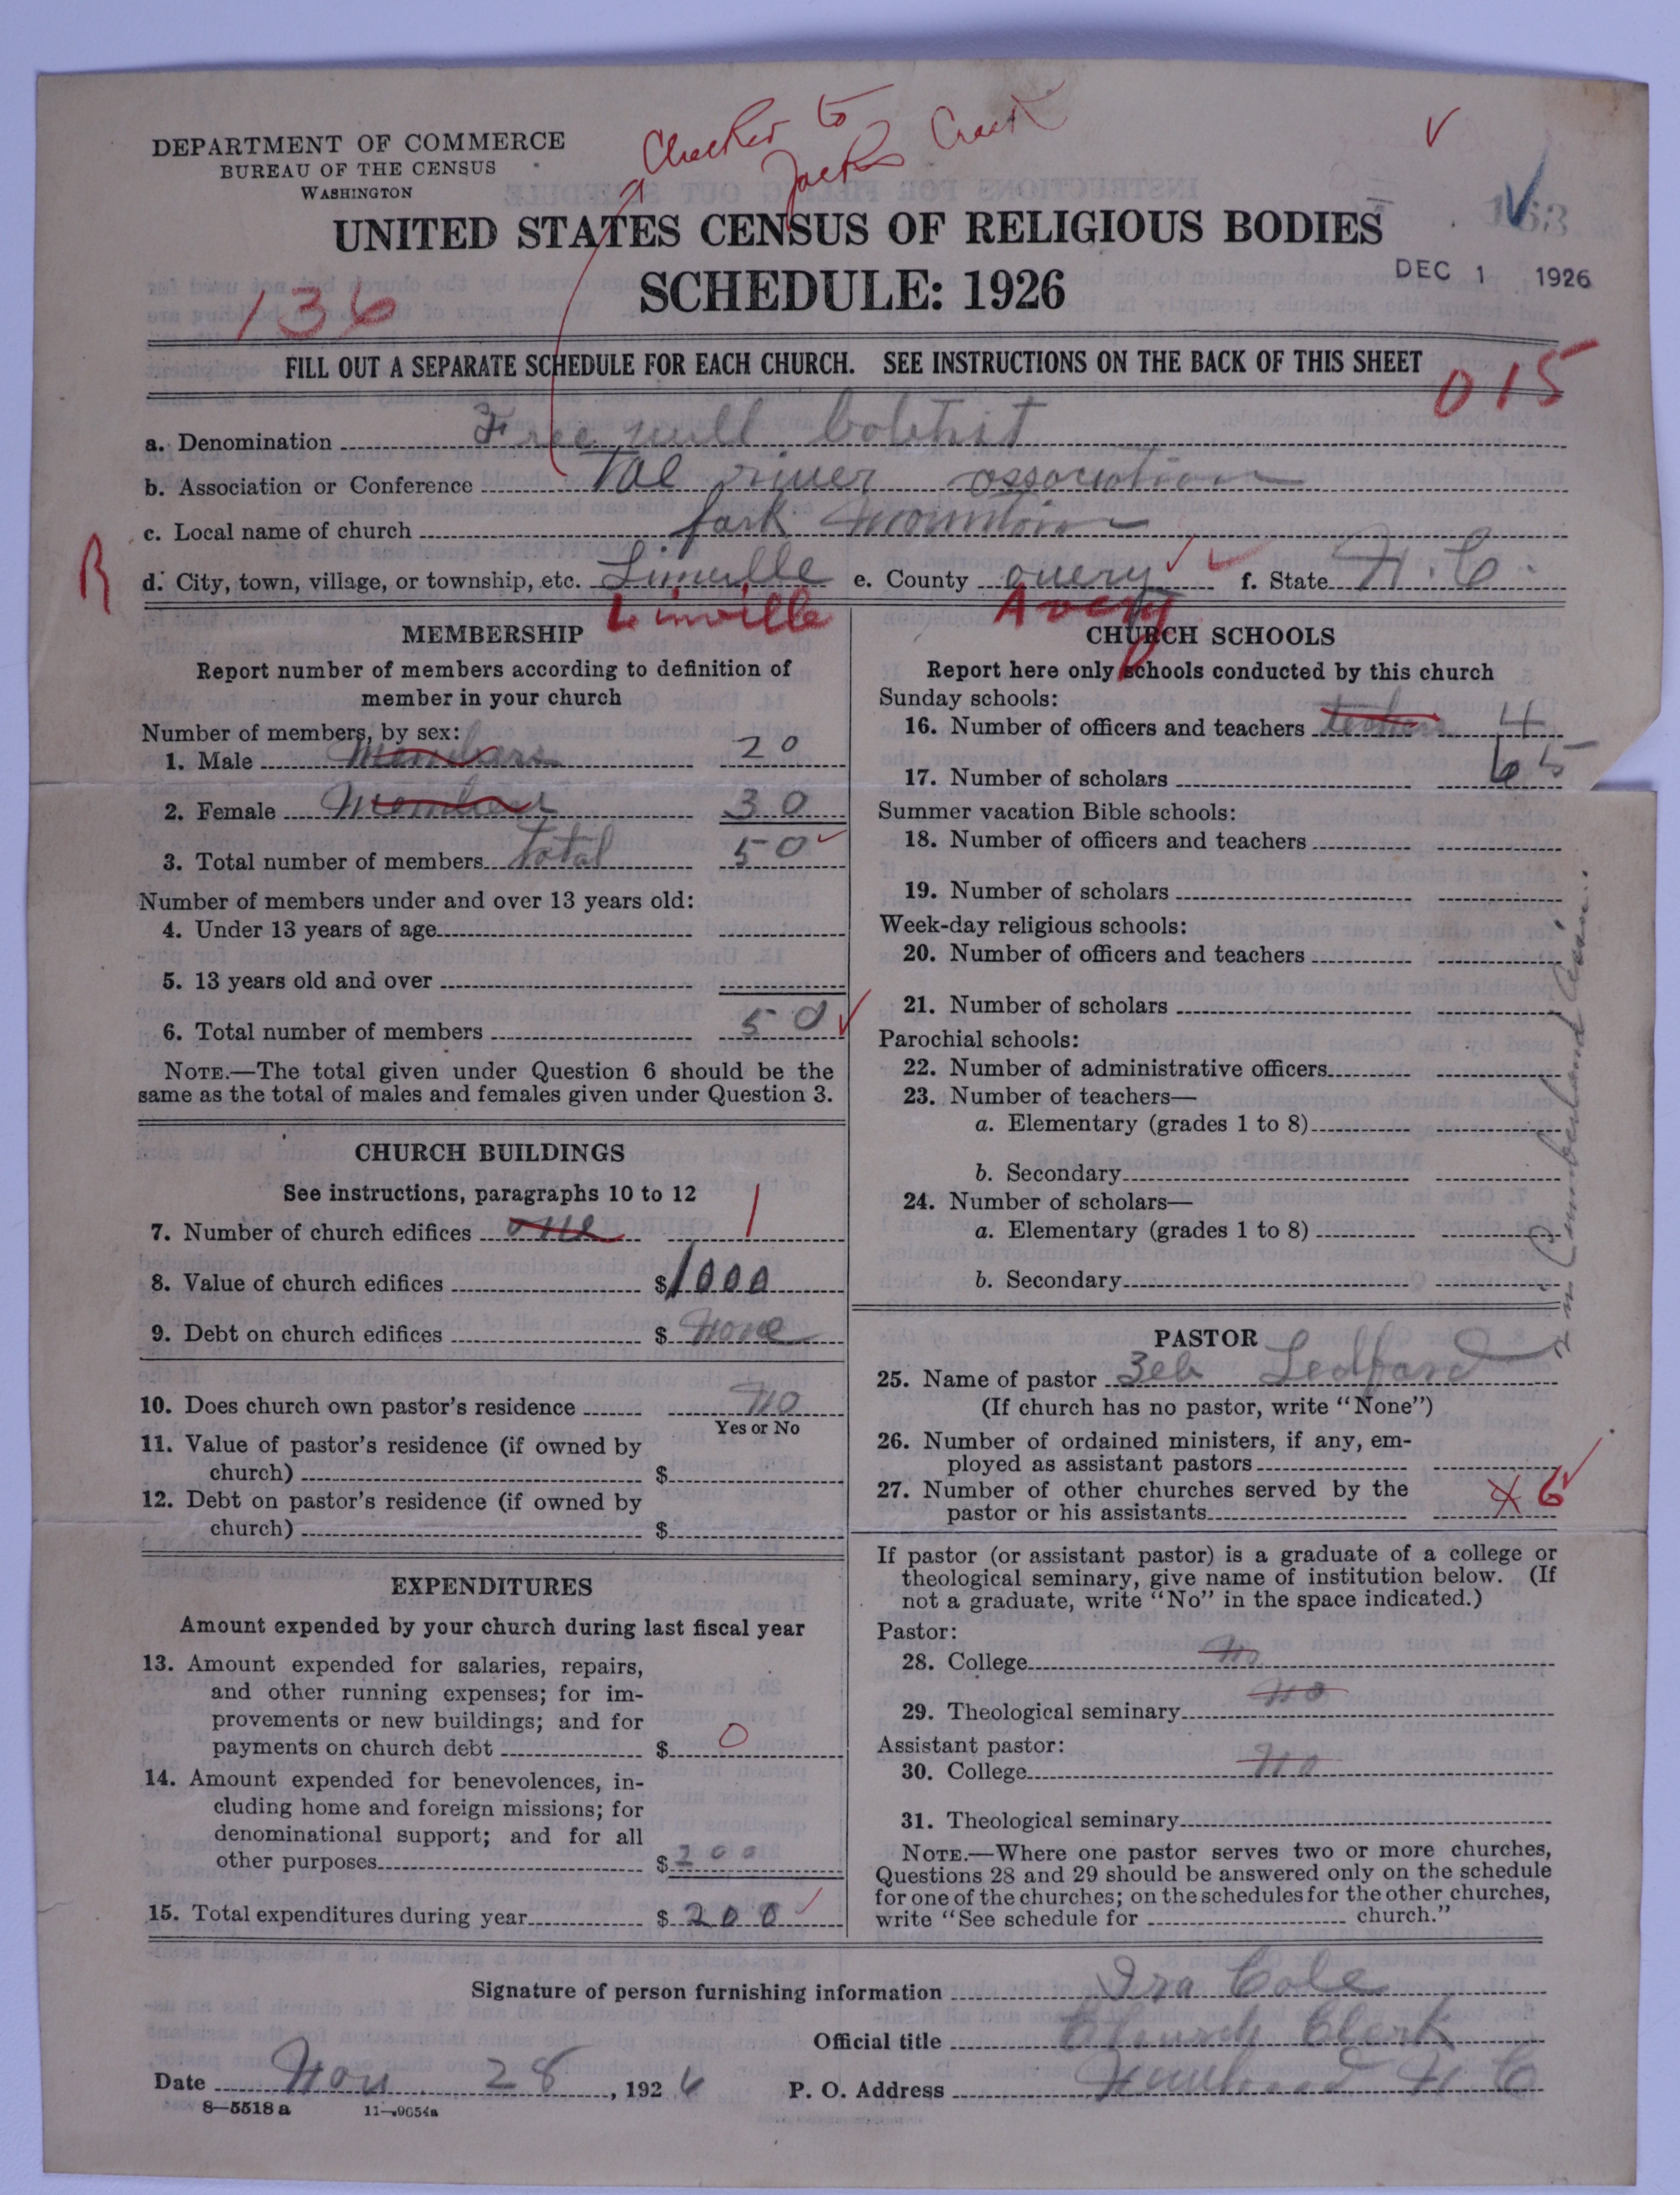 Checked to
Jacks Creek
DEPARTMENT OF COMMERCE
BUREAU OF THE CENSUS
WASHINGTON
UNITED STATES CENSUS OF RELIGIOUS BODIES
SCHEDULE: 1926
DEC 1 1926
136
FILL OUT A SEPARATE SCHEDULE FOR EACH CHURCH. SEE INSTRUCTIONS ON THE BACK OF THIS SHEET
015
a. Denomination Free will
b. Association or Conference Toe river association
c. Local name of church fark mountain
R
d. City, town, village, or township, etc. Linville e. County avery f. State N.C.
Linville Avery
MEMBERSHIP
Report number of members according to definition of
member in your church
Number of members, by sex:
1. Male Members 20
2. Female Members 30
3. Total number of members Total 50
Number of members under and over 13 years old:
4. Under 13 years of age
5. 13 years old and over
6. Total number of members 50
NOTE.—The total given under Question 6 should be the
same as the total of males and females given under Question 3.
CHURCH BUILDINGS
See instructions, paragraphs 10 to 12
7. Number of church edifices one 1
8. Value of church edifices $1000
9. Debt on church edifices $ None
10. Does church own pastor's residence no
Yes or No
11. Value of pastor's residence (if owned by
church) $
12. Debt on pastor's residence (if owned by
church) $
EXPENDITURES
Amount expended by your church during last fiscal year
13. Amount expended for salaries, repairs,
and other running expenses; for im-
provements or new buildings; and for
payments on church debt $ 0
14. Amount expended for benevolences, in-
cluding home and foreign missions; for
denominational support; and for all
other purposes $ 200
15. Total expenditures during year $ 200
CHURCH SCHOOLS
Report here only schools conducted by this church
Sunday schools:
16. Number of officers and teachers teachers 4
17. Number of scholars 65
Summer vacation Bible schools:
18. Number of officers and teachers
19. Number of scholars
Week-day religious schools:
20. Number of officers and teachers
21. Number of scholars
Parochial schools:
22. Number of administrative officers
23. Number of teachers—
a. Elementary (grades 1 to 8)
b. Secondary
24. Number of scholars—
a. Elementary (grades 1 to 8)
b. Secondary
PASTOR
25. Name of pastor Zeb Ledford
(If church has no pastor, write "None")
26. Number of ordained ministers, if any, em-
ployed as assistant pastors
27. Number of other churches served by the
pastor or his assistants 6
If pastor (or assistant pastor) is a graduate of a college or
theological seminary, give name of institution below. (If
not a graduate, write "No" in the space indicated.)
Pastor:
28. College No
29. Theological seminary No
Assistant pastor:
30. College No
31. Theological seminary
NOTE.—Where one pastor serves two or more churches,
Questions 28 and 29 should be answered only on the schedule
for one of the churches; on the schedules for the other churches,
write "See schedule for church."
Signature of person furnishing information Ira Cole
Official title Church Clerk
Date Nov. 28, 1926 P. O. Address N C
8—5518 a 11—9654a